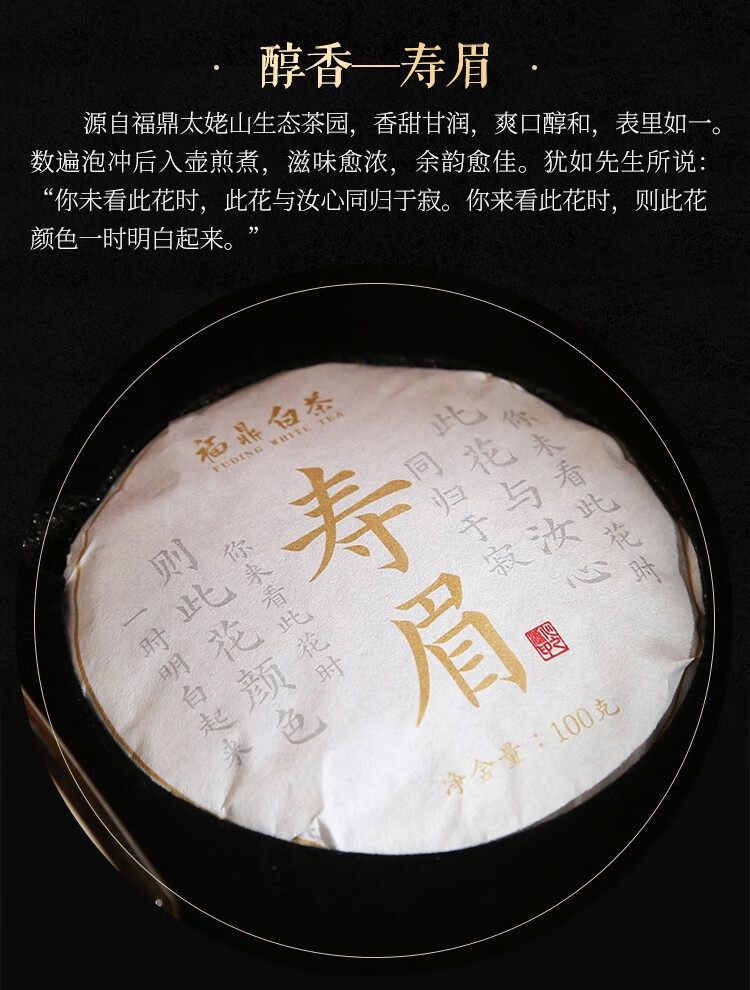 · 醇香—寿眉 ·
源自福鼎太姥山生态茶园，香甜甘润，爽口醇和，表里如一。
数遍泡冲后入壶煎煮，滋味愈浓，余韵愈佳。犹如先生所说：
“你未看此花时，此花与汝心同归于寂。你来看此花时，则此花
颜色一时明白起来。”
福鼎白茶
FUDING WHITE TEA
寿眉
你未看此花时
此花与汝心
同归于寂
你来看此花时
则此花颜色
一时明白起来
净含量：100克